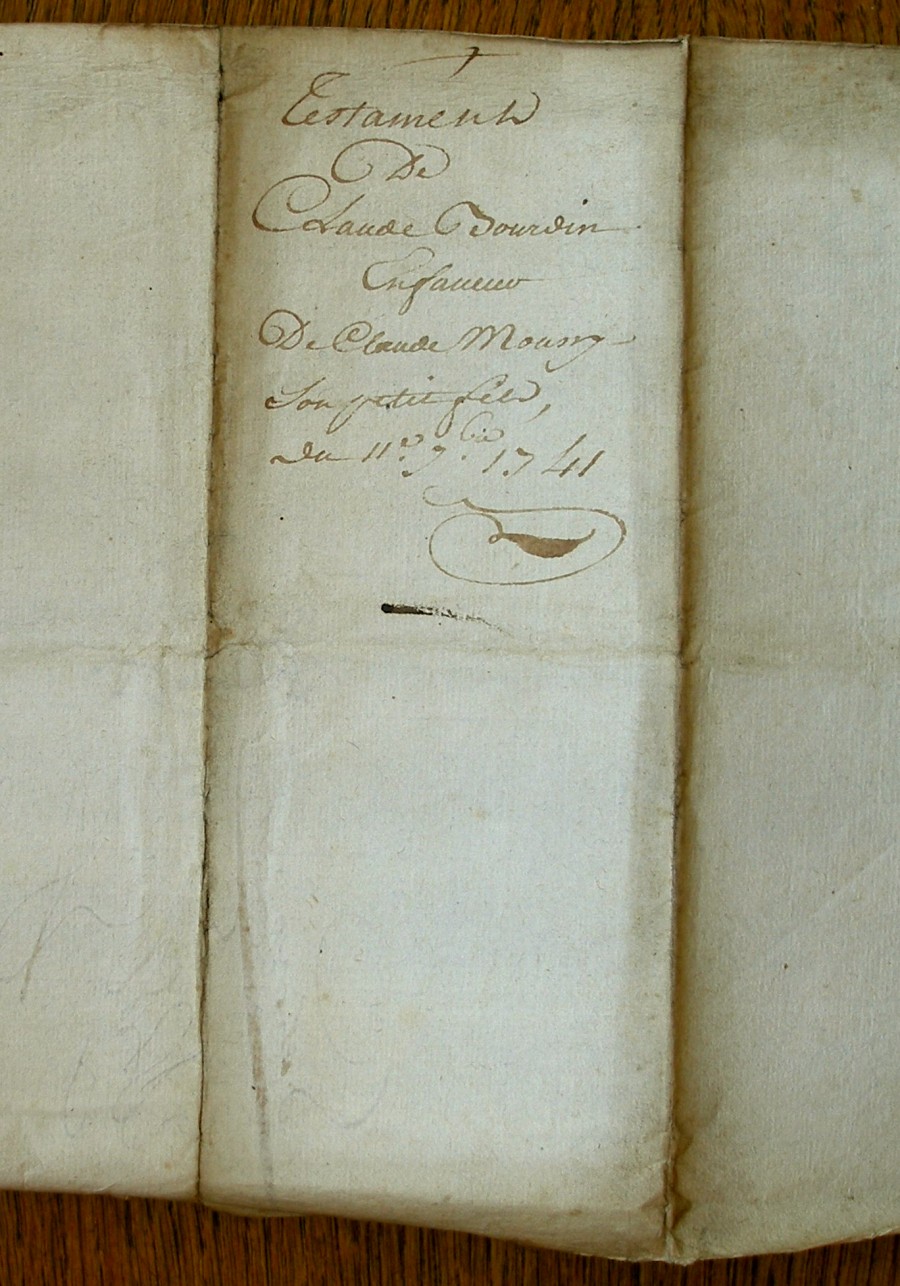 Testament
De
Claude Bourdin
Enfaueur
De Claude Moury
Son petit fils,
du 11e. 7.bre 1741